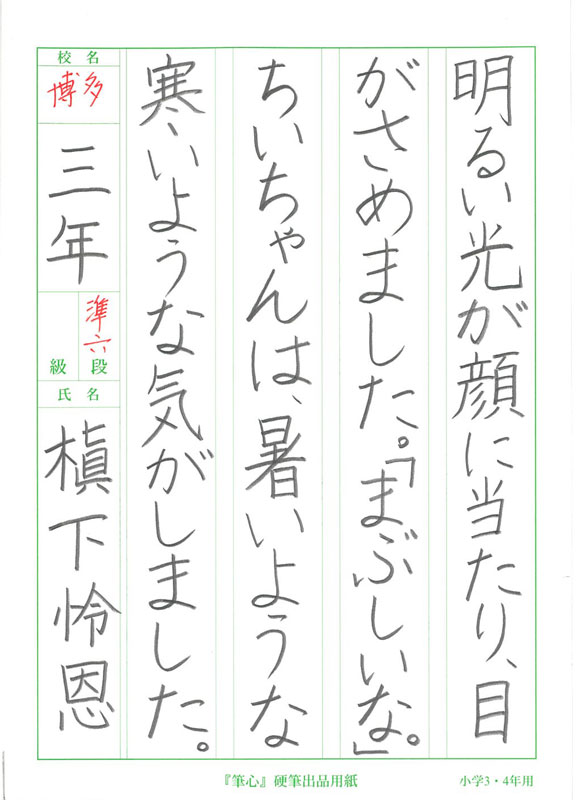 明るい光が顔に当たり、目
がさめました。「まぶしいな。」
ちいちゃんは、暑いような
寒いような気がしました。
校名
博多
三年
準六
級
段
氏名
槙下怜恩
『筆心』硬筆出品用紙
小学3・4年用